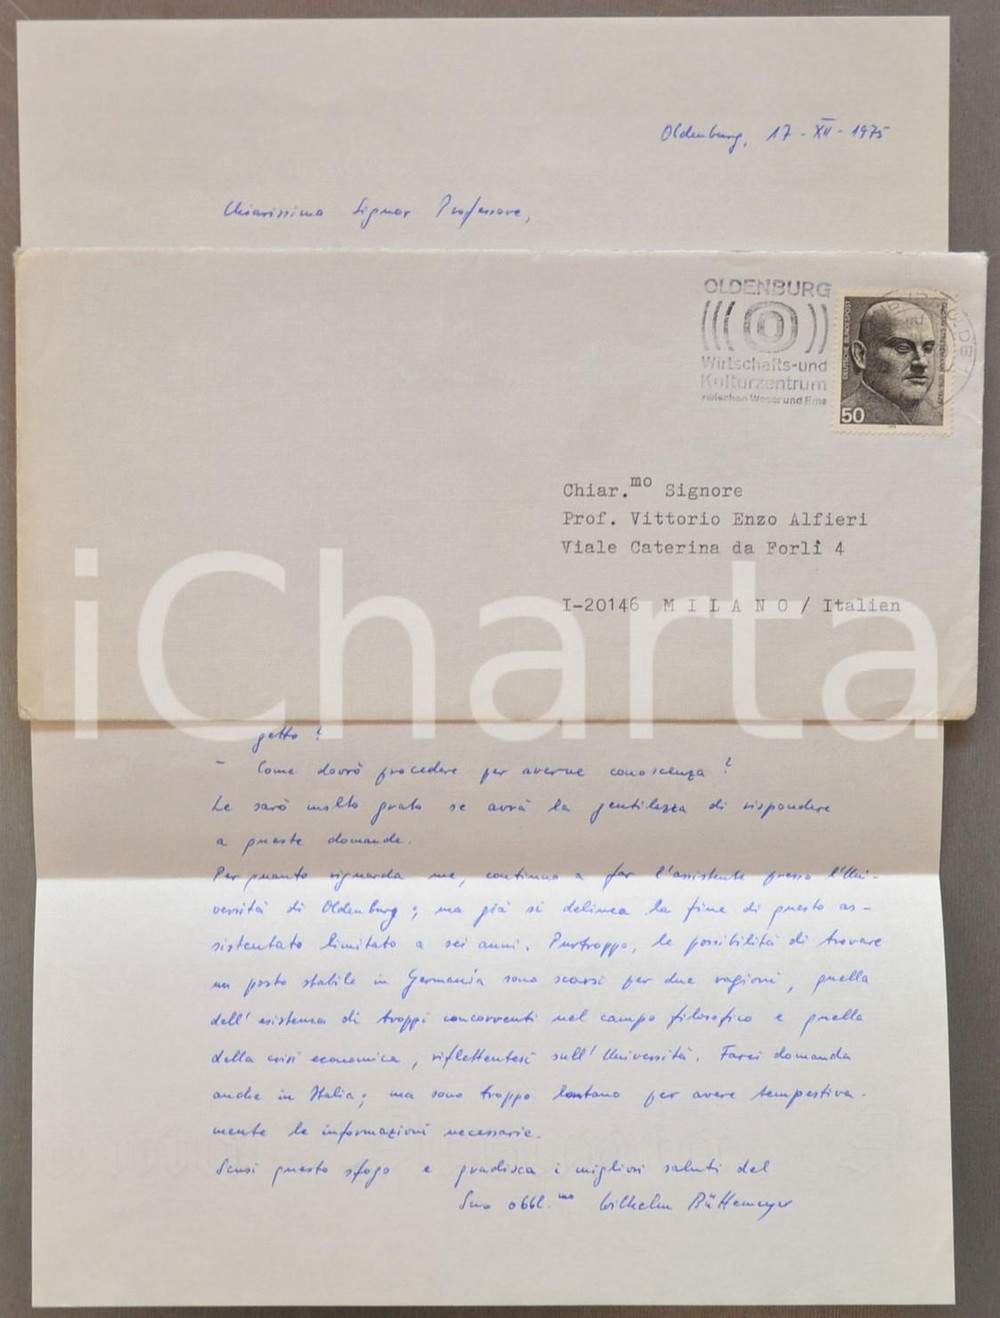 Oldenburg, 17-XII-1975
Chiarissimo Signor Professore,
OLDENBURG
Wirtschafts-und
Kulturzentrum
zwischen Weser und Ems
DEUTSCHE BUNDESPOST
50
Chiar.mo Signore
Prof. Vittorio Enzo Alfieri
Viale Caterina da Forlì 4
I-20146 MILANO / Italien
iCharta
getto?
- Come dovrò procedere per averne conoscenza?
Le sarò molto grato se avrà la gentilezza di rispondere
a queste domande.
Per quanto riguarda me, continuo a far l'assistente presso l'Uni-
versità di Oldenburg; ma già si delinea la fine di questo as-
sistentato limitato a sei anni. Purtroppo, le possibilità di trovare
un posto stabile in Germania sono scarsi per due ragioni, quella
dell'esistenza di troppi concorrenti nel campo filosofico e quella
della crisi economica, riflettentesi sull'Università. Farei domanda
anche in Italia; ma sono troppo lontano per avere tempestiva-
mente le informazioni necessarie.
Scusi questo sfogo e gradisca i migliori saluti del
Suo obbl.mo Wilhelm Büttemeyer